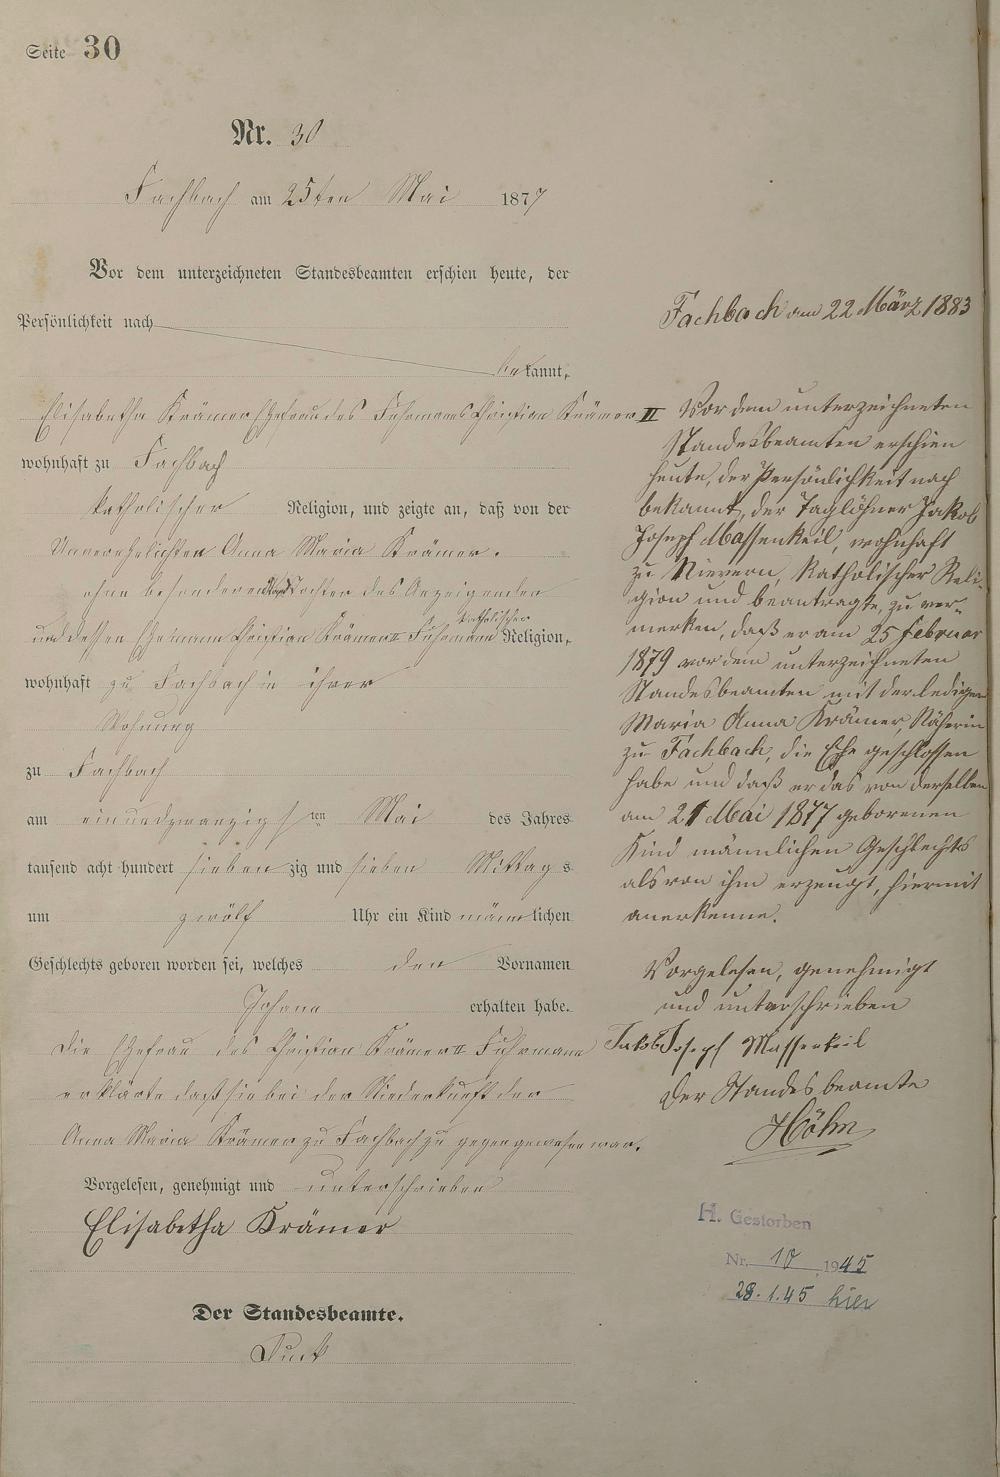 Seite 30
Nr. 30
Fachbach am 25ten Mai 1877
Vor dem unterzeichneten Standesbeamten erschien heute, der
Persönlichkeit nach
bekannt,
Elisabetha Krämer Ehefrau des Fuhrmanns Christian Krämer II
wohnhaft zu Fachbach
katholischer Religion, und zeigte an, daß von der
Unverehelichten Anna Maria Krämer.
ohne besonderen Stand Tochter des Anzeigenden
und dessen Ehemann Christian Krämer II Fuhrmann katholischer Religion,
wohnhaft zu Fachbach in ihrer
Wohnung
zu Fachbach
am einundzwanzigsten Mai des Jahres
tausend acht hundert siebenzig und sieben Mittags
um zwölf Uhr ein Kind männlichen
Geschlechts geboren worden sei, welches den Vornamen
Johann erhalten habe.
Die Ehefrau des Christian Krämer II Fuhrmann
erklärte daß sie bei der Niederkunft der
Anna Maria Krämer zu Fachbach zu gegen gewesen war.
Vorgelesen, genehmigt und unterschrieben
Elisabetha Krämer
Der Standesbeamte.
Fachbach am 22 März 1883
Vor dem unterzeichneten
Standesbeamten erschien
heute, der Persönlichkeit nach
bekannt, der Taglöhner Jakob
Joseph Massenkeil, wohnhaft
zu Nievern, katholischer Reli-
gion und beantragte, zu ver-
merken, daß er am 25 Februar
1879 vor dem unterzeichneten
Standesbeamten mit der ledigen
Maria Anna Krämer, Näherin
zu Fachbach, die Ehe geschlossen
habe und daß er das von derselben
am 21 Mai 1877 geborenen
Kind männlichen Geschlechts
als von ihm erzeugt, hiermit
anerkenne.
Vorgelesen, genehmigt
und unterschrieben
Jakob Joseph Massenkeil
Der Standesbeamte
Höhn
H. Gestorben
Nr. 10 1945
28.1.45 hier